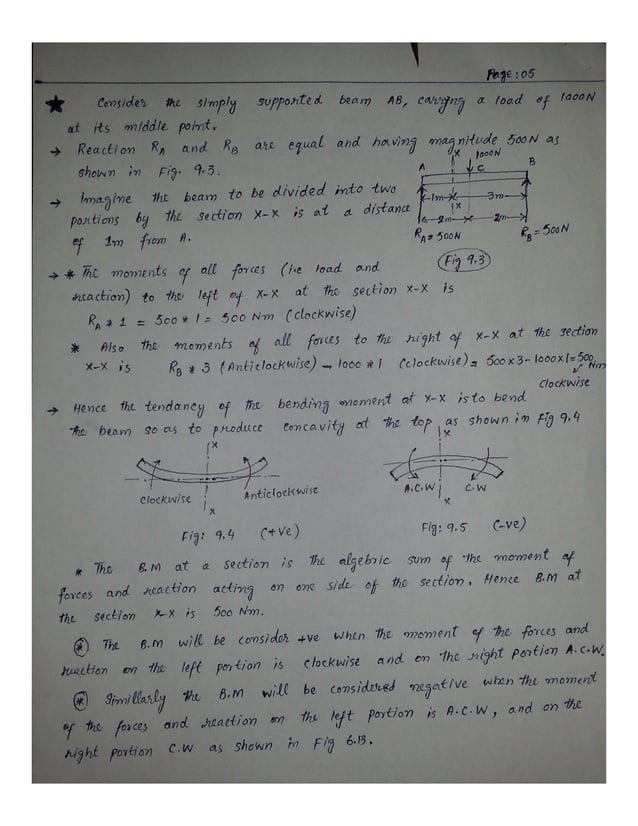 Page : 05
★ Consider the simply supported beam AB, carryng a load of 1000N
at its middle point.
→ Reaction RA and RB are equal and having magnitude 500N as
shown in Fig. 9.3.
→ Imagine the beam to be divided into two
portions by the section X-X is at a distance
of 1m from A.
X 1000N
A C B
1m 3m
X
2m 2m
RA = 500N RB = 500N
Fig 9.3
→ * The moments of all forces (i.e load and
reaction) to the left of X-X at the section X-X is
RA * 1 = 500 * 1 = 500 Nm (clockwise)
* Also the moments of all forces to the right of X-X at the section
X-X is RB * 3 (Anticlockwise) - 1000 * 1 (clockwise) = 500 x 3 - 1000 x 1 = 500 Nm
Clockwise
→ Hence the tendancy of the bending moment at X-X is to bend
the beam so as to produce concavity at the top as shown in Fig 9.4
X X
clockwise Anticlockwise A.C.W C.W
X X
Fig: 9.4 (+ve) Fig: 9.5 (-ve)
* The B.M at a section is the algebric sum of the moment of
forces and reaction acting on one side of the section. Hence B.M at
the section X-X is 500 Nm.
* The B.M will be consider +ve when the moment of the forces and
reaction on the left portion is clockwise and on the right portion A.C.W.
* Simillarly the B.M will be considered negative when the moment
of the forces and reaction on the left portion is A.C.W, and on the
right portion C.W as shown in Fig 6.13.